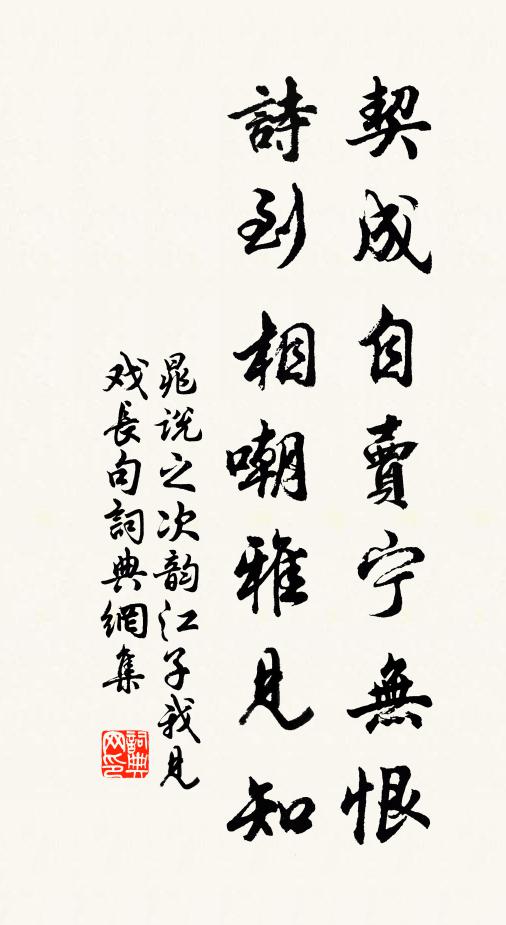 契成自賣宁無恨
詩到相嘲雅見知
晁说之次韵江子我見
戏長句詞典網集
詞典网印